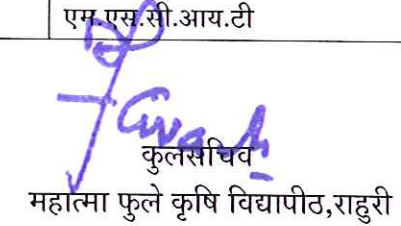 एम.एस.सी.आय.टी
कुलसचिव
महात्मा फुले कृषि विद्यापीठ,राहुरी